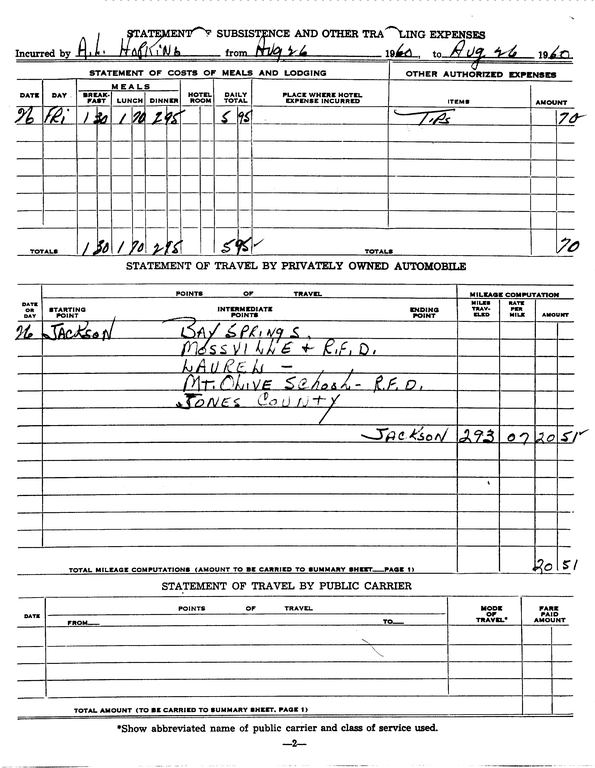 STATEMENT OF SUBSISTENCE AND OTHER TRA LING EXPENSES
Incurred by A.L. HOPKINS from Aug 26 1960 to Aug 26 1960
STATEMENT OF COSTS OF MEALS AND LODGING OTHER AUTHORIZED EXPENSES
DATE DAY MEALS BREAK-FAST LUNCH DINNER HOTEL ROOM DAILY TOTAL PLACE WHERE HOTEL EXPENSE INCURRED ITEMS AMOUNT
26 FRi 1 30 1 70 2 95 5 95 Tips 70
TOTALS 1 30 1 70 2 95 5 95 ✓ TOTALS 70
STATEMENT OF TRAVEL BY PRIVATELY OWNED AUTOMOBILE
POINTS OF TRAVEL MILEAGE COMPUTATION
DATE OR DAY STARTING POINT INTERMEDIATE POINTS ENDING POINT MILES TRAV-ELED RATE PER MILE AMOUNT
26 JACKSON BAY SPRINGS.
MOSSVILLE + R.F.D.
LAUREL -
MT. OLIVE SCHOOL - R.F.D.
JONES COUNTY
JACKSON 293 07 20 51 ✓
TOTAL MILEAGE COMPUTATIONS (AMOUNT TO BE CARRIED TO SUMMARY SHEET.....PAGE 1) 20 51
STATEMENT OF TRAVEL BY PUBLIC CARRIER
POINTS OF TRAVEL
DATE FROM..... TO..... MODE OF TRAVEL* FARE PAID AMOUNT
TOTAL AMOUNT (TO BE CARRIED TO SUMMARY SHEET, PAGE 1)
*Show abbreviated name of public carrier and class of service used.
—2—